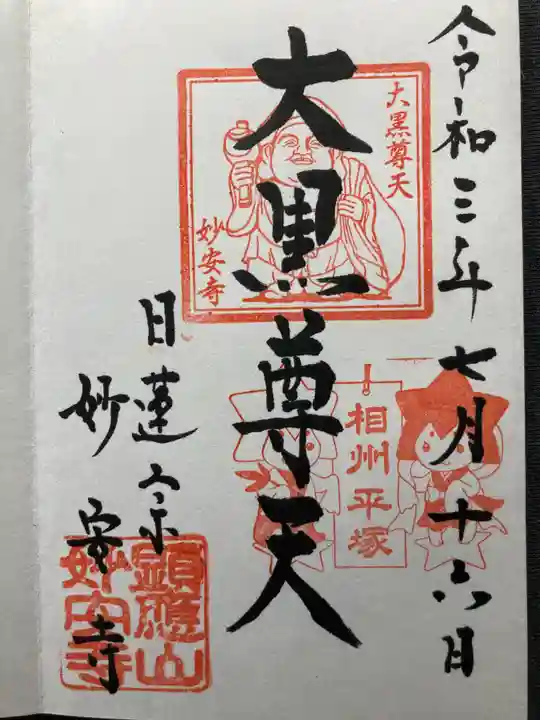 令和三年七月十六日
大黒尊天
大黒尊天
妙安寺
相州平塚
日蓮宗
妙安寺
顕雄山
妙安寺